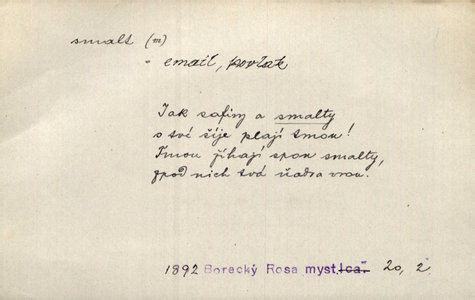 smalt (m)
= email, povlak
Jak safiry a smalty
s tvé šije plají tmou!
Tmou jihají spon smalty,
zpod nich tvá ňadra vrou.
1892 Borecký Rosa mystica" 20, 2